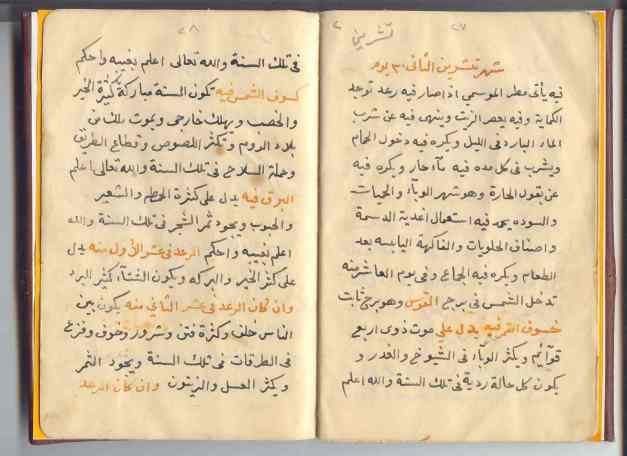 ٢٧
تشرين ٢
شهر تشرين الثاني ٣٠ يوم
فيه يأتي مطر الموسمي اذا صار فيه رعد توجد
الكماية وفيه يعصر الزيت وينهى فيه عن شرب
الماء البارد في الليل ويكره فيه دخول الحمام
ويشرب في كل مده فيه مآء حار ويكره فيه
عن بقول الحارة وهو شهر الوبآء والحيات
والسوده يحمد فيه استعمال أغدية الدسمة
واصناف الحلويات والفاكهة اليابسه بعد
الطعام ويكره فيه الجماع وفي يوم العاشر منه
تدخل الشمس في برج القوس وهو برج ثابت
خسوف القمر فيه يدل على موت ذوي اربع
قوائم ويكثر الوبآء في الشيوخ والغدر و
يكون كل حالة ردية في تلك السنة والله اعلم
٢٨
في تلك السنة والله تعالى اعلم بغيبه واحكم
كسوف الشمس فيه تكون السنة مباركة كثيرة الخير
والخصب ويهلك خارجي ويموت ملك من
بلاد الروم وتكثر اللصوص وقطاع الطريق
وحملة السلاح في تلك السنة والله تعالى اعلم
البرق فيه يدل على كثرة الحطم والشعير
والحبوب ويجود ثمر الشجر في تلك السنة والله
اعلم بغيبه واحكم الرعد في عشر الأول منه يدل
على كثر الخير والبركه ويكون الشتآء كثير البرد
وان كان الرعد في عشر الثاني منه يكون بين
الناس خلف وكثرة فتن وشرور وخوف وفزع
في الطرقات في تلك السنة ويجود الثمر
ويكثر العسل والزيتون وان كان الرعد